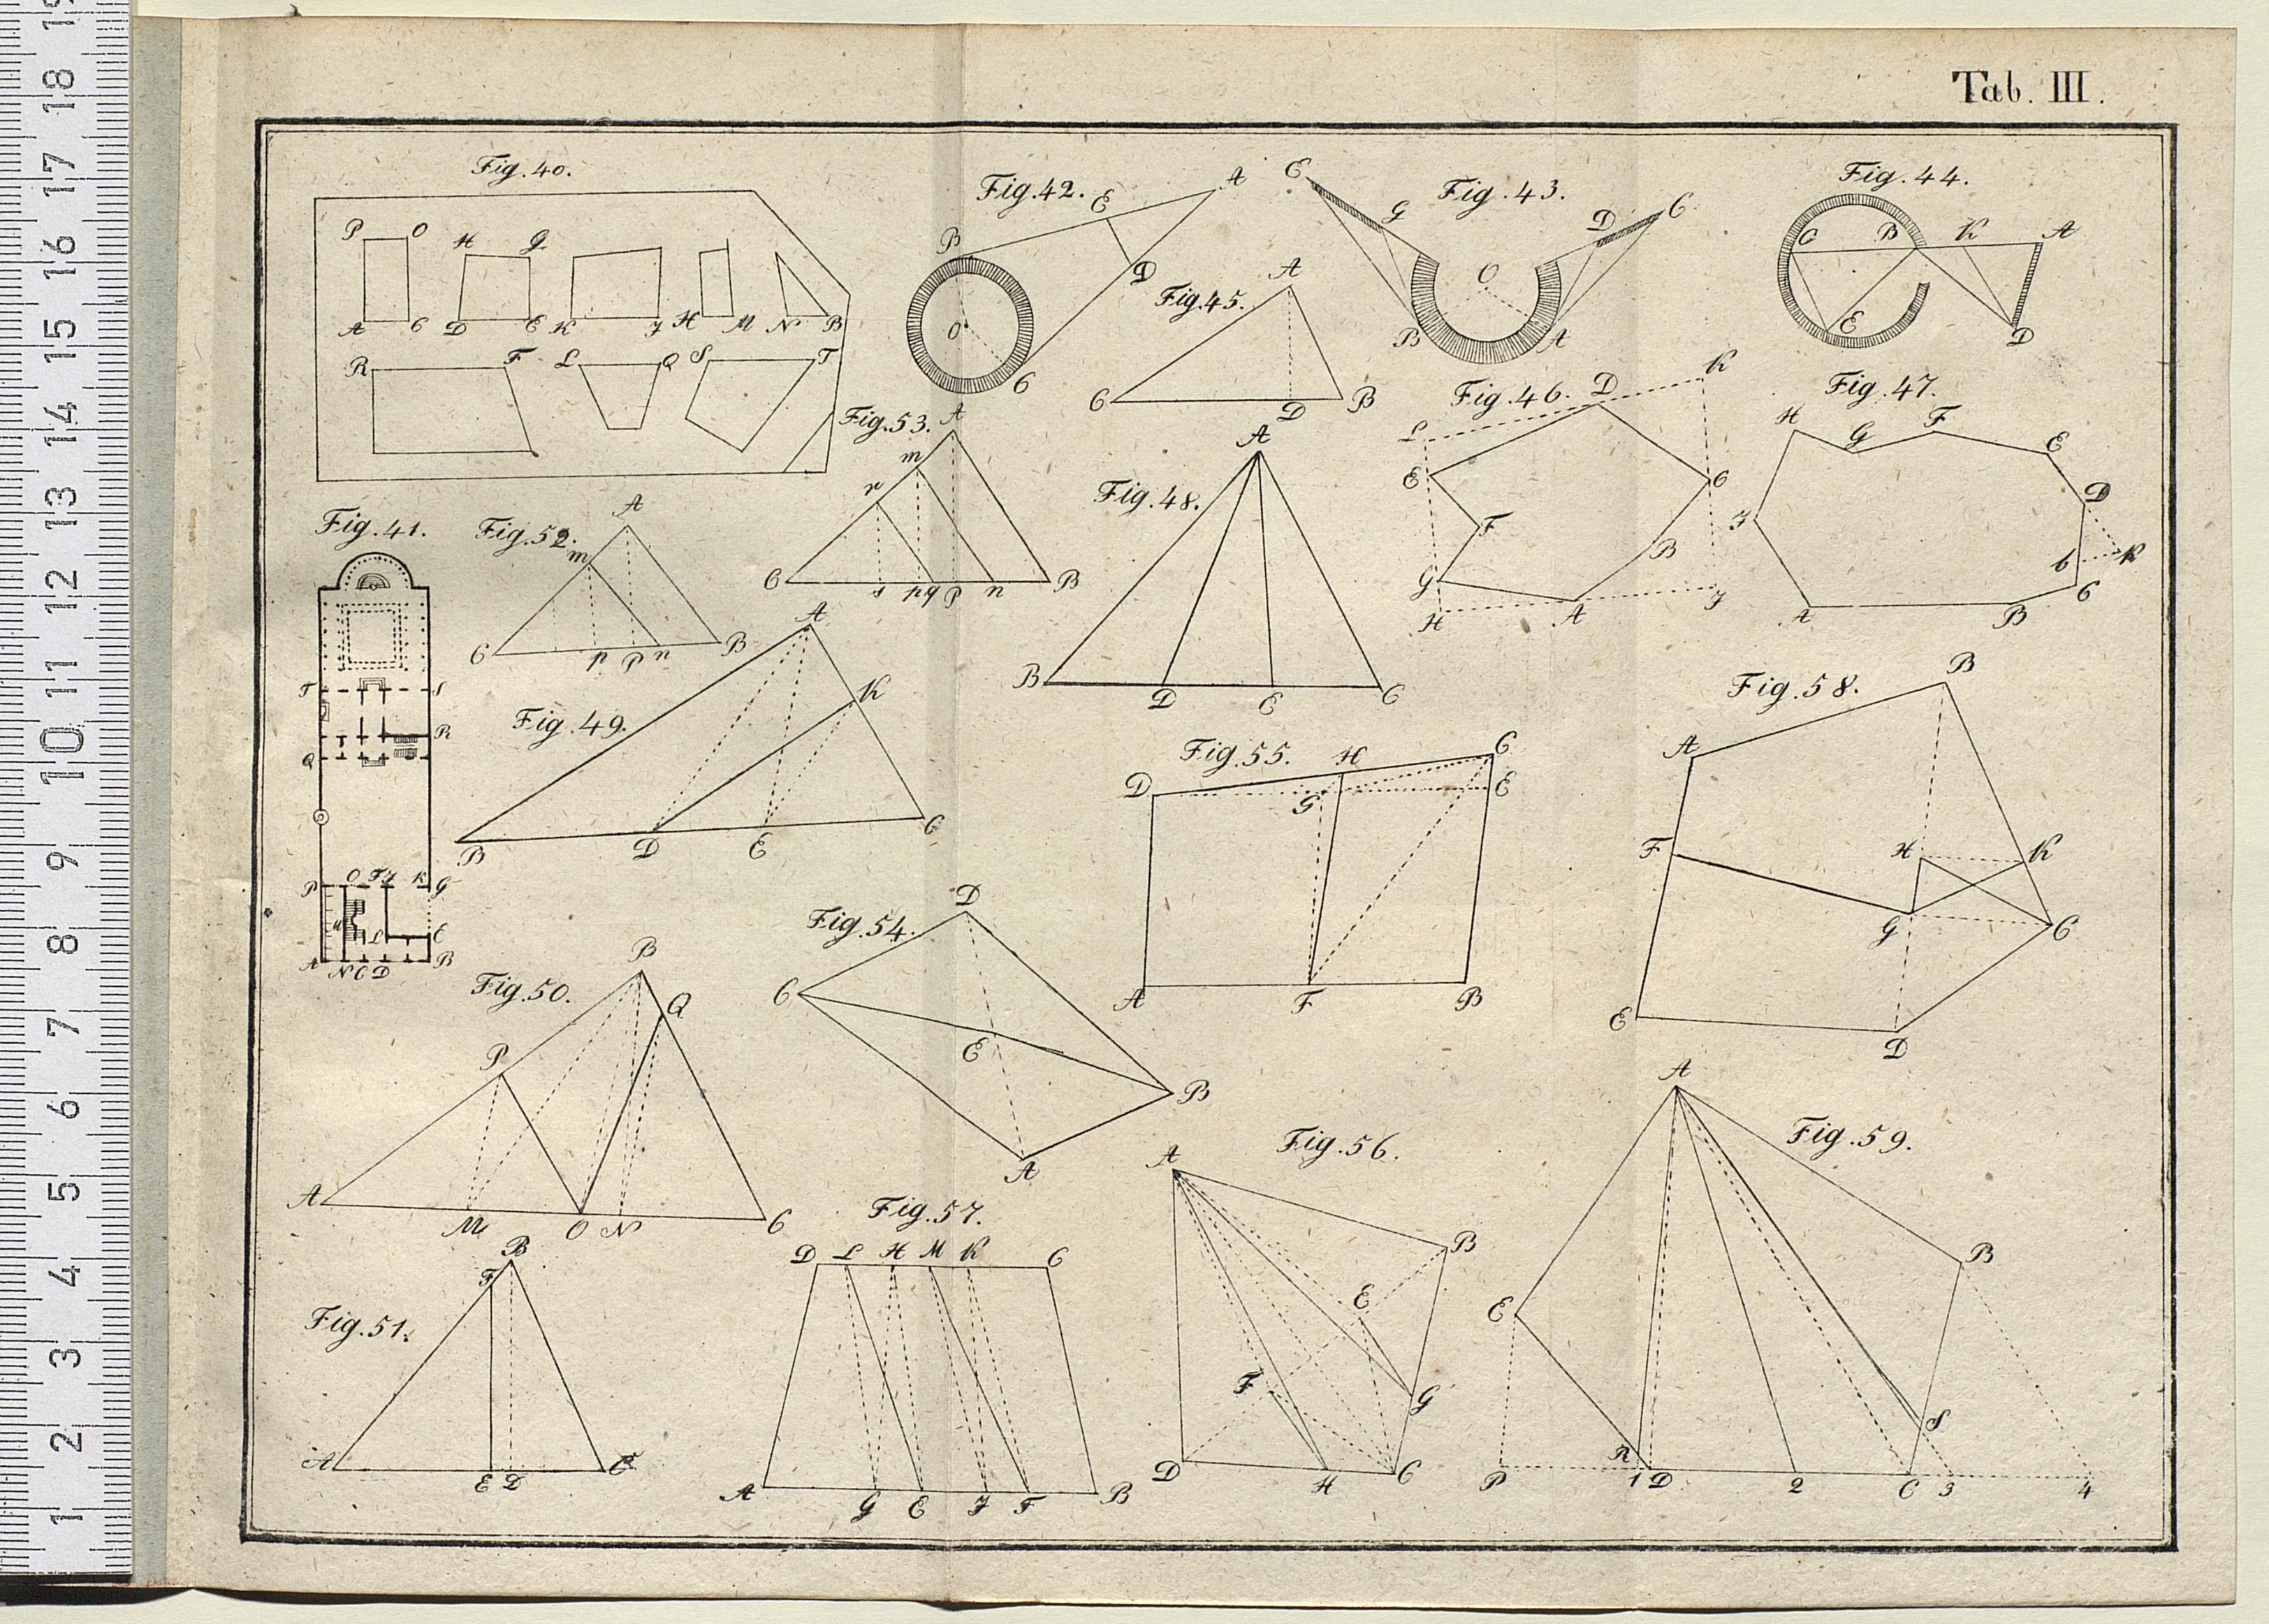 Tab. III.
Fig. 40.
P O H G
A C D E K I H M N B
R F L Q S T
Fig. 42.
B E A
D
O
C
Fig. 43.
E G D C
O
B A
Fig. 44.
C B K A
E D
Fig. 45.
A
C D B
Fig. 46.
D K
L
E C
F
B
G
H A I
Fig. 47.
H G F E
D
I
b R
A B C
Fig. 53.
A
m
r
C s p q P n B
Fig. 48.
A
B D E C
Fig. 41.
T S
R
Q
P O F I K G
L E
A N C D B
Fig. 52.
A
m
C p P n B
Fig. 49.
A
K
B D E C
Fig. 58.
B
A
F H K
G C
E D
Fig. 55.
D H C
G E
A F B
Fig. 54.
D
C
E
B
A
Fig. 50.
B
Q
P
A M O N C
Fig. 57.
D L H M K C
A G E I F B
Fig. 56.
A
B
E
F G
D H C
Fig. 59.
A
B
E
R S
P 1 D 2 C 3 4
Fig. 51.
B
F
A E D C
1 2 3 4 5 6 7 8 9 10 11 12 13 14 15 16 17 18